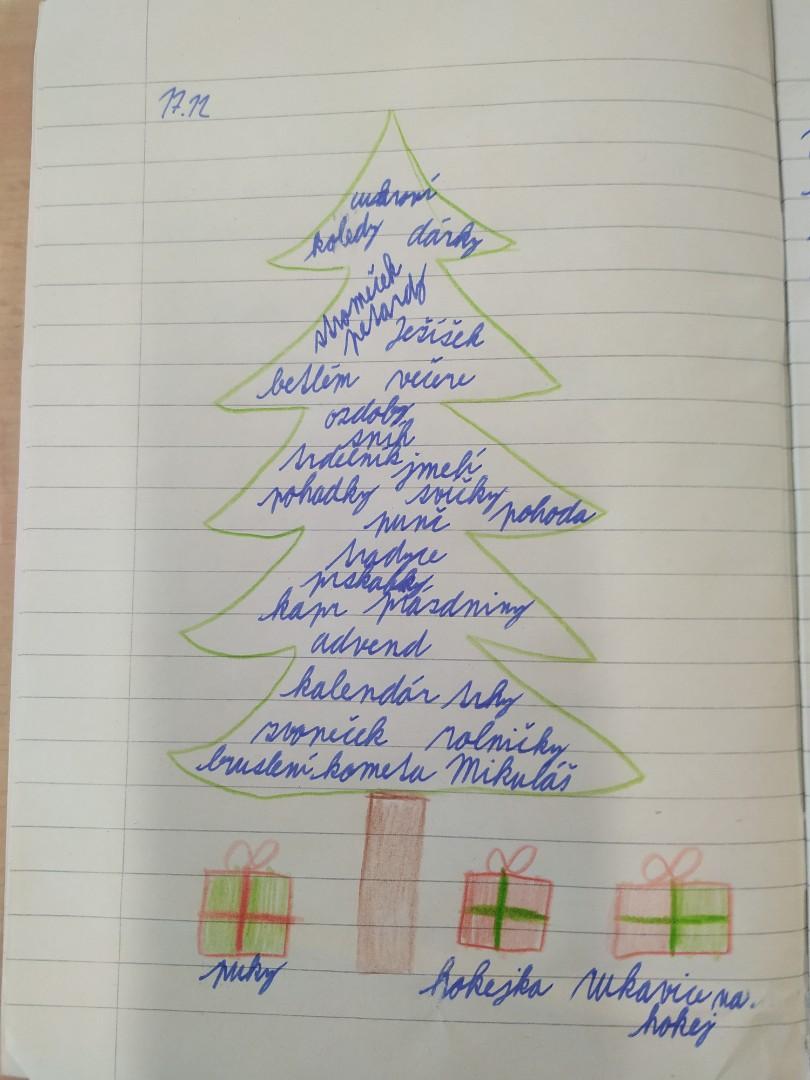 17.12
cukroví
koledy dárky
stromeček
petardy
Ježíšek
betlém večeře
ozdoby
sníh
trdelník jmelí
pohadky svíčky
punč pohoda
tradyce
prskavky
kapr prázdniny
advend
kalendár trhy
zvoneček rolničky
bruslení kometa Mikuláš
puky hokejka rukavice na
hokej